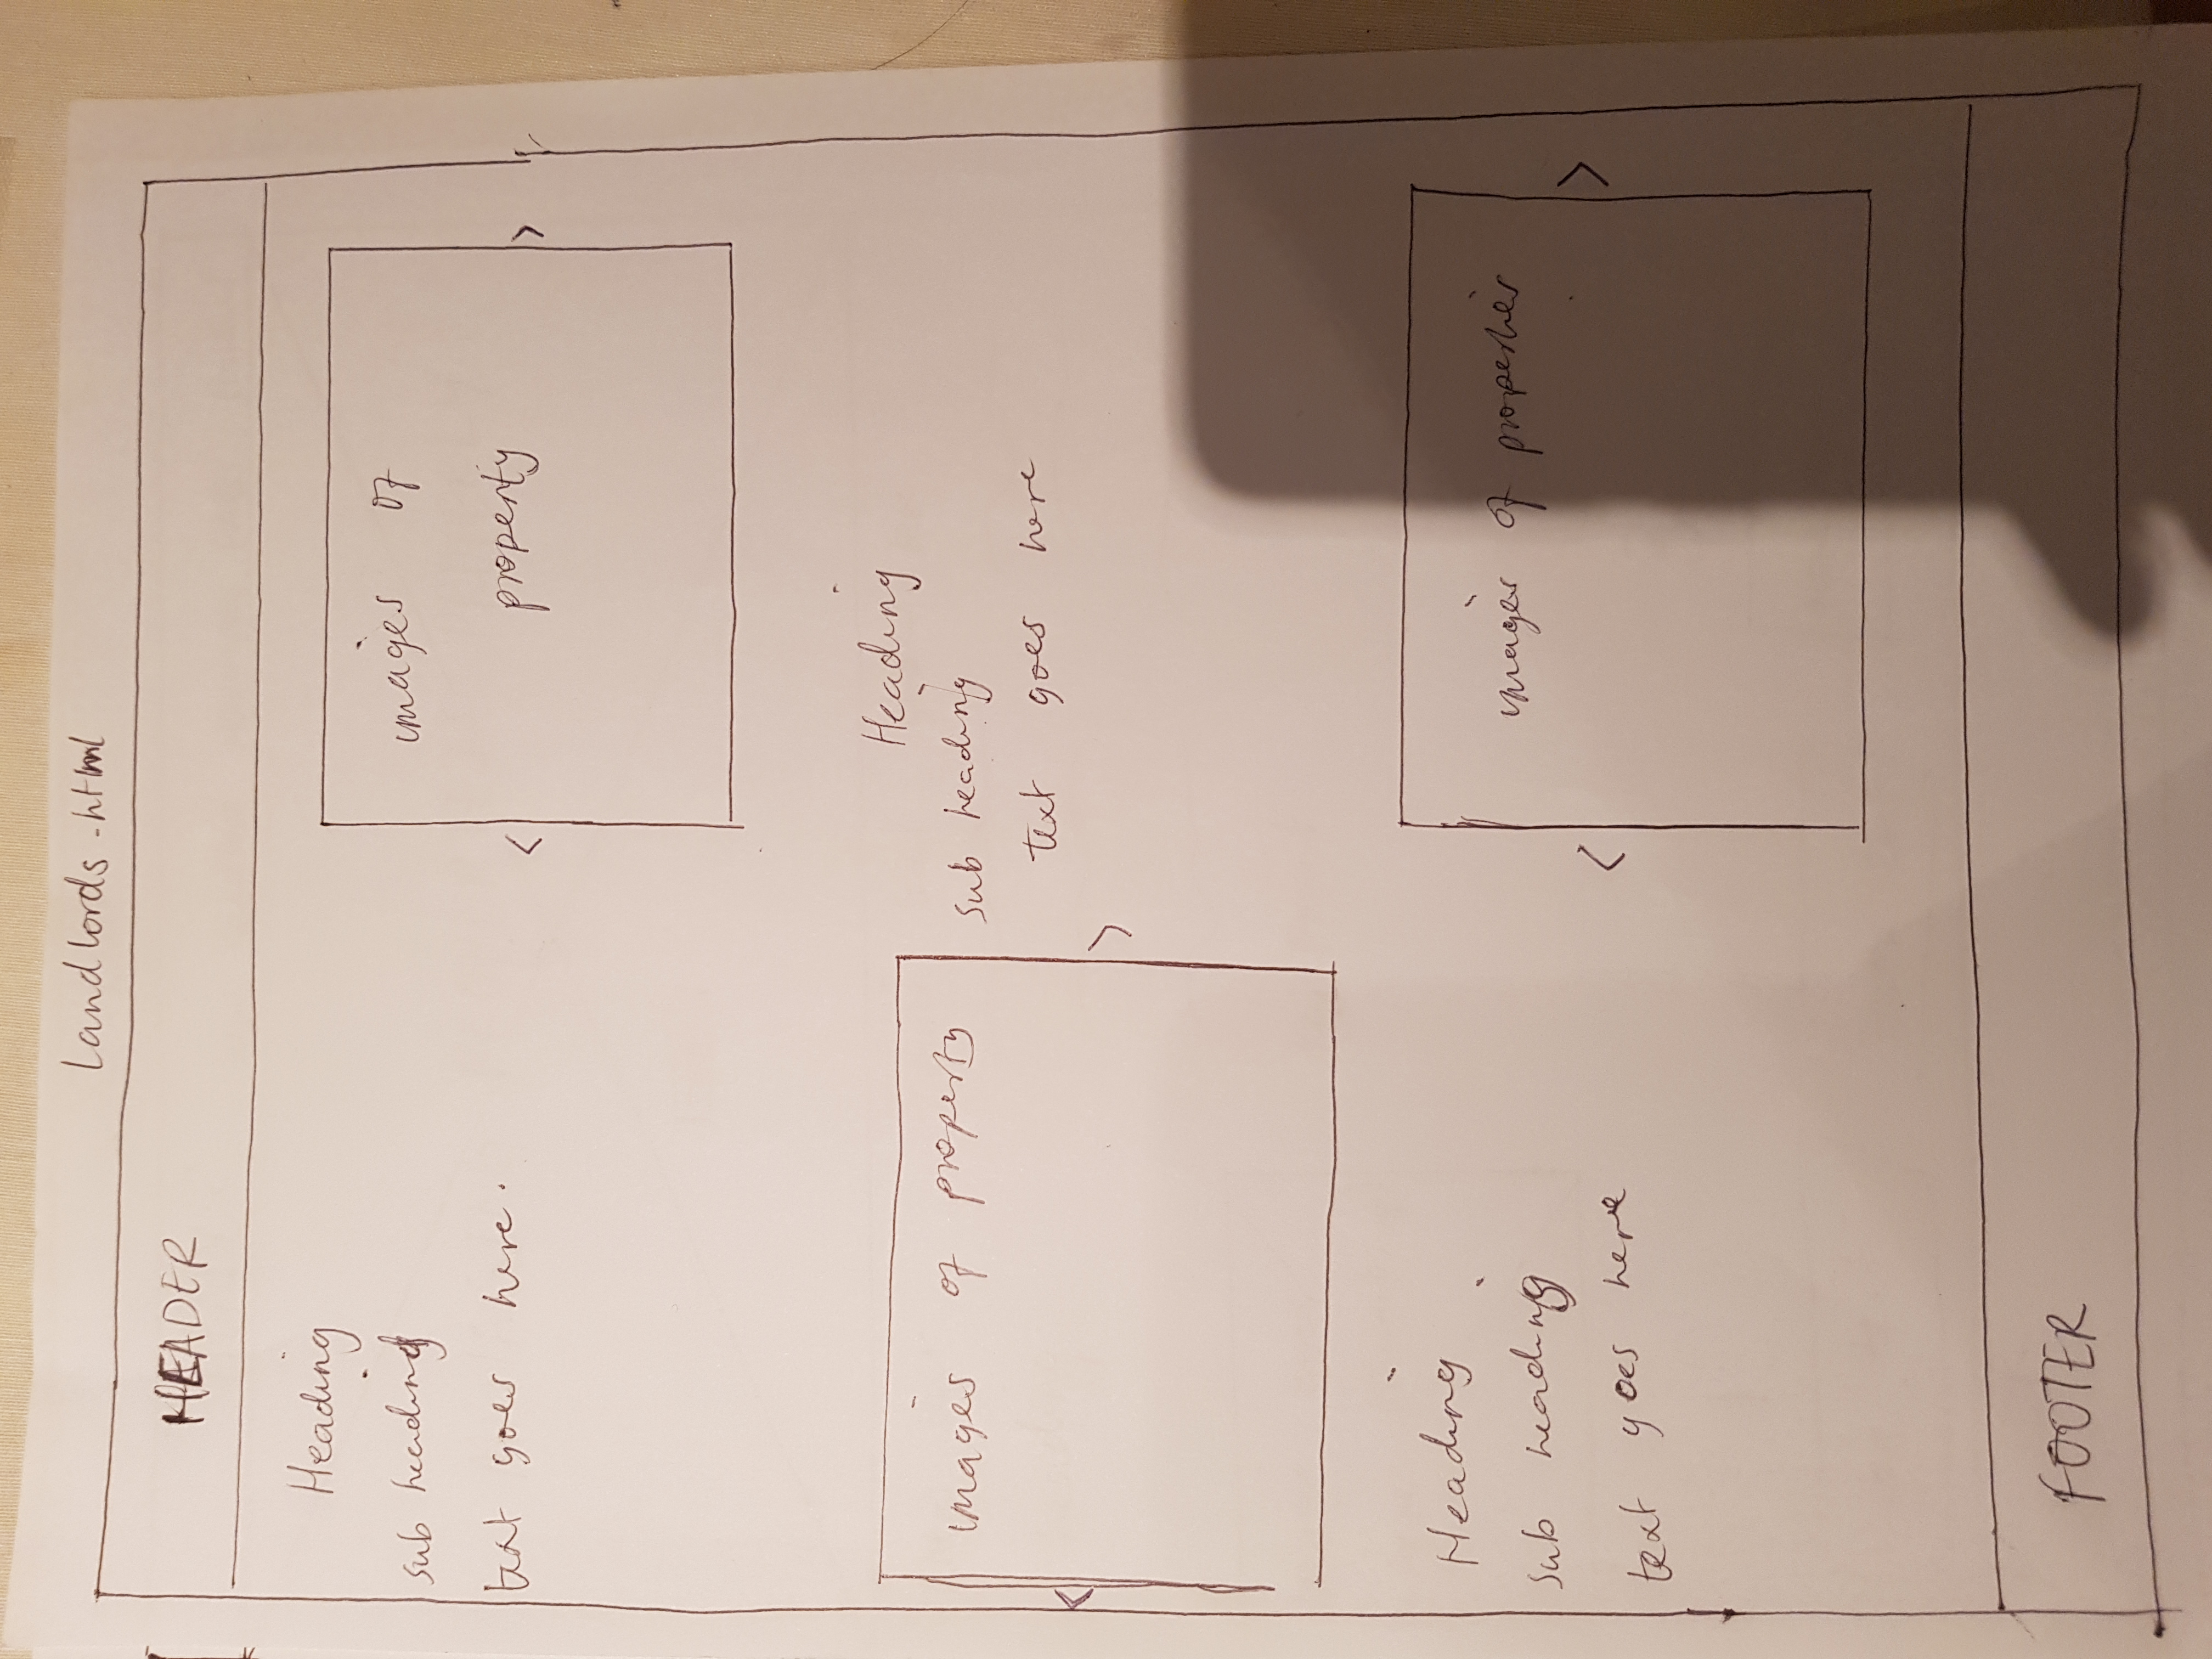 Landlords.html
HEADER
Heading
sub heading
text goes here.
images of
property
<
>
images of property
<
>
Heading
sub heading
text goes here
Heading
sub heading
text goes here
images of properties
<
>
FOOTER